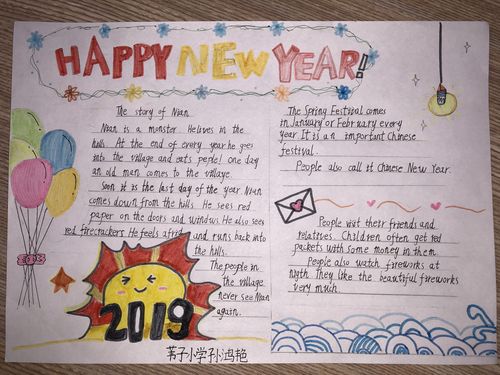 HAPPY NEW YEAR!
The story of Nian
Nian is a monster. He lives in the
hills. At the end of every year he goes
into the village and eats people! one day
an old man comes to the village.
Soon it is the last day of the year. Nian
comes down from the hills. He sees red
paper on the doors and windows. He also sees
red firecrackers. He feels afraid and runs back into
the hills.
The people in
the village
never see Nian
again.
2019
The Spring Festival comes
in January or February every
year. It is an important Chinese
festival.
People also call it Chinese New Year.
People visit their friends and
relatives. Children often get red
packets with some money in them.
People also watch fireworks at
night. They like the beautiful fireworks
very much.
苇子小学孙鸿艳